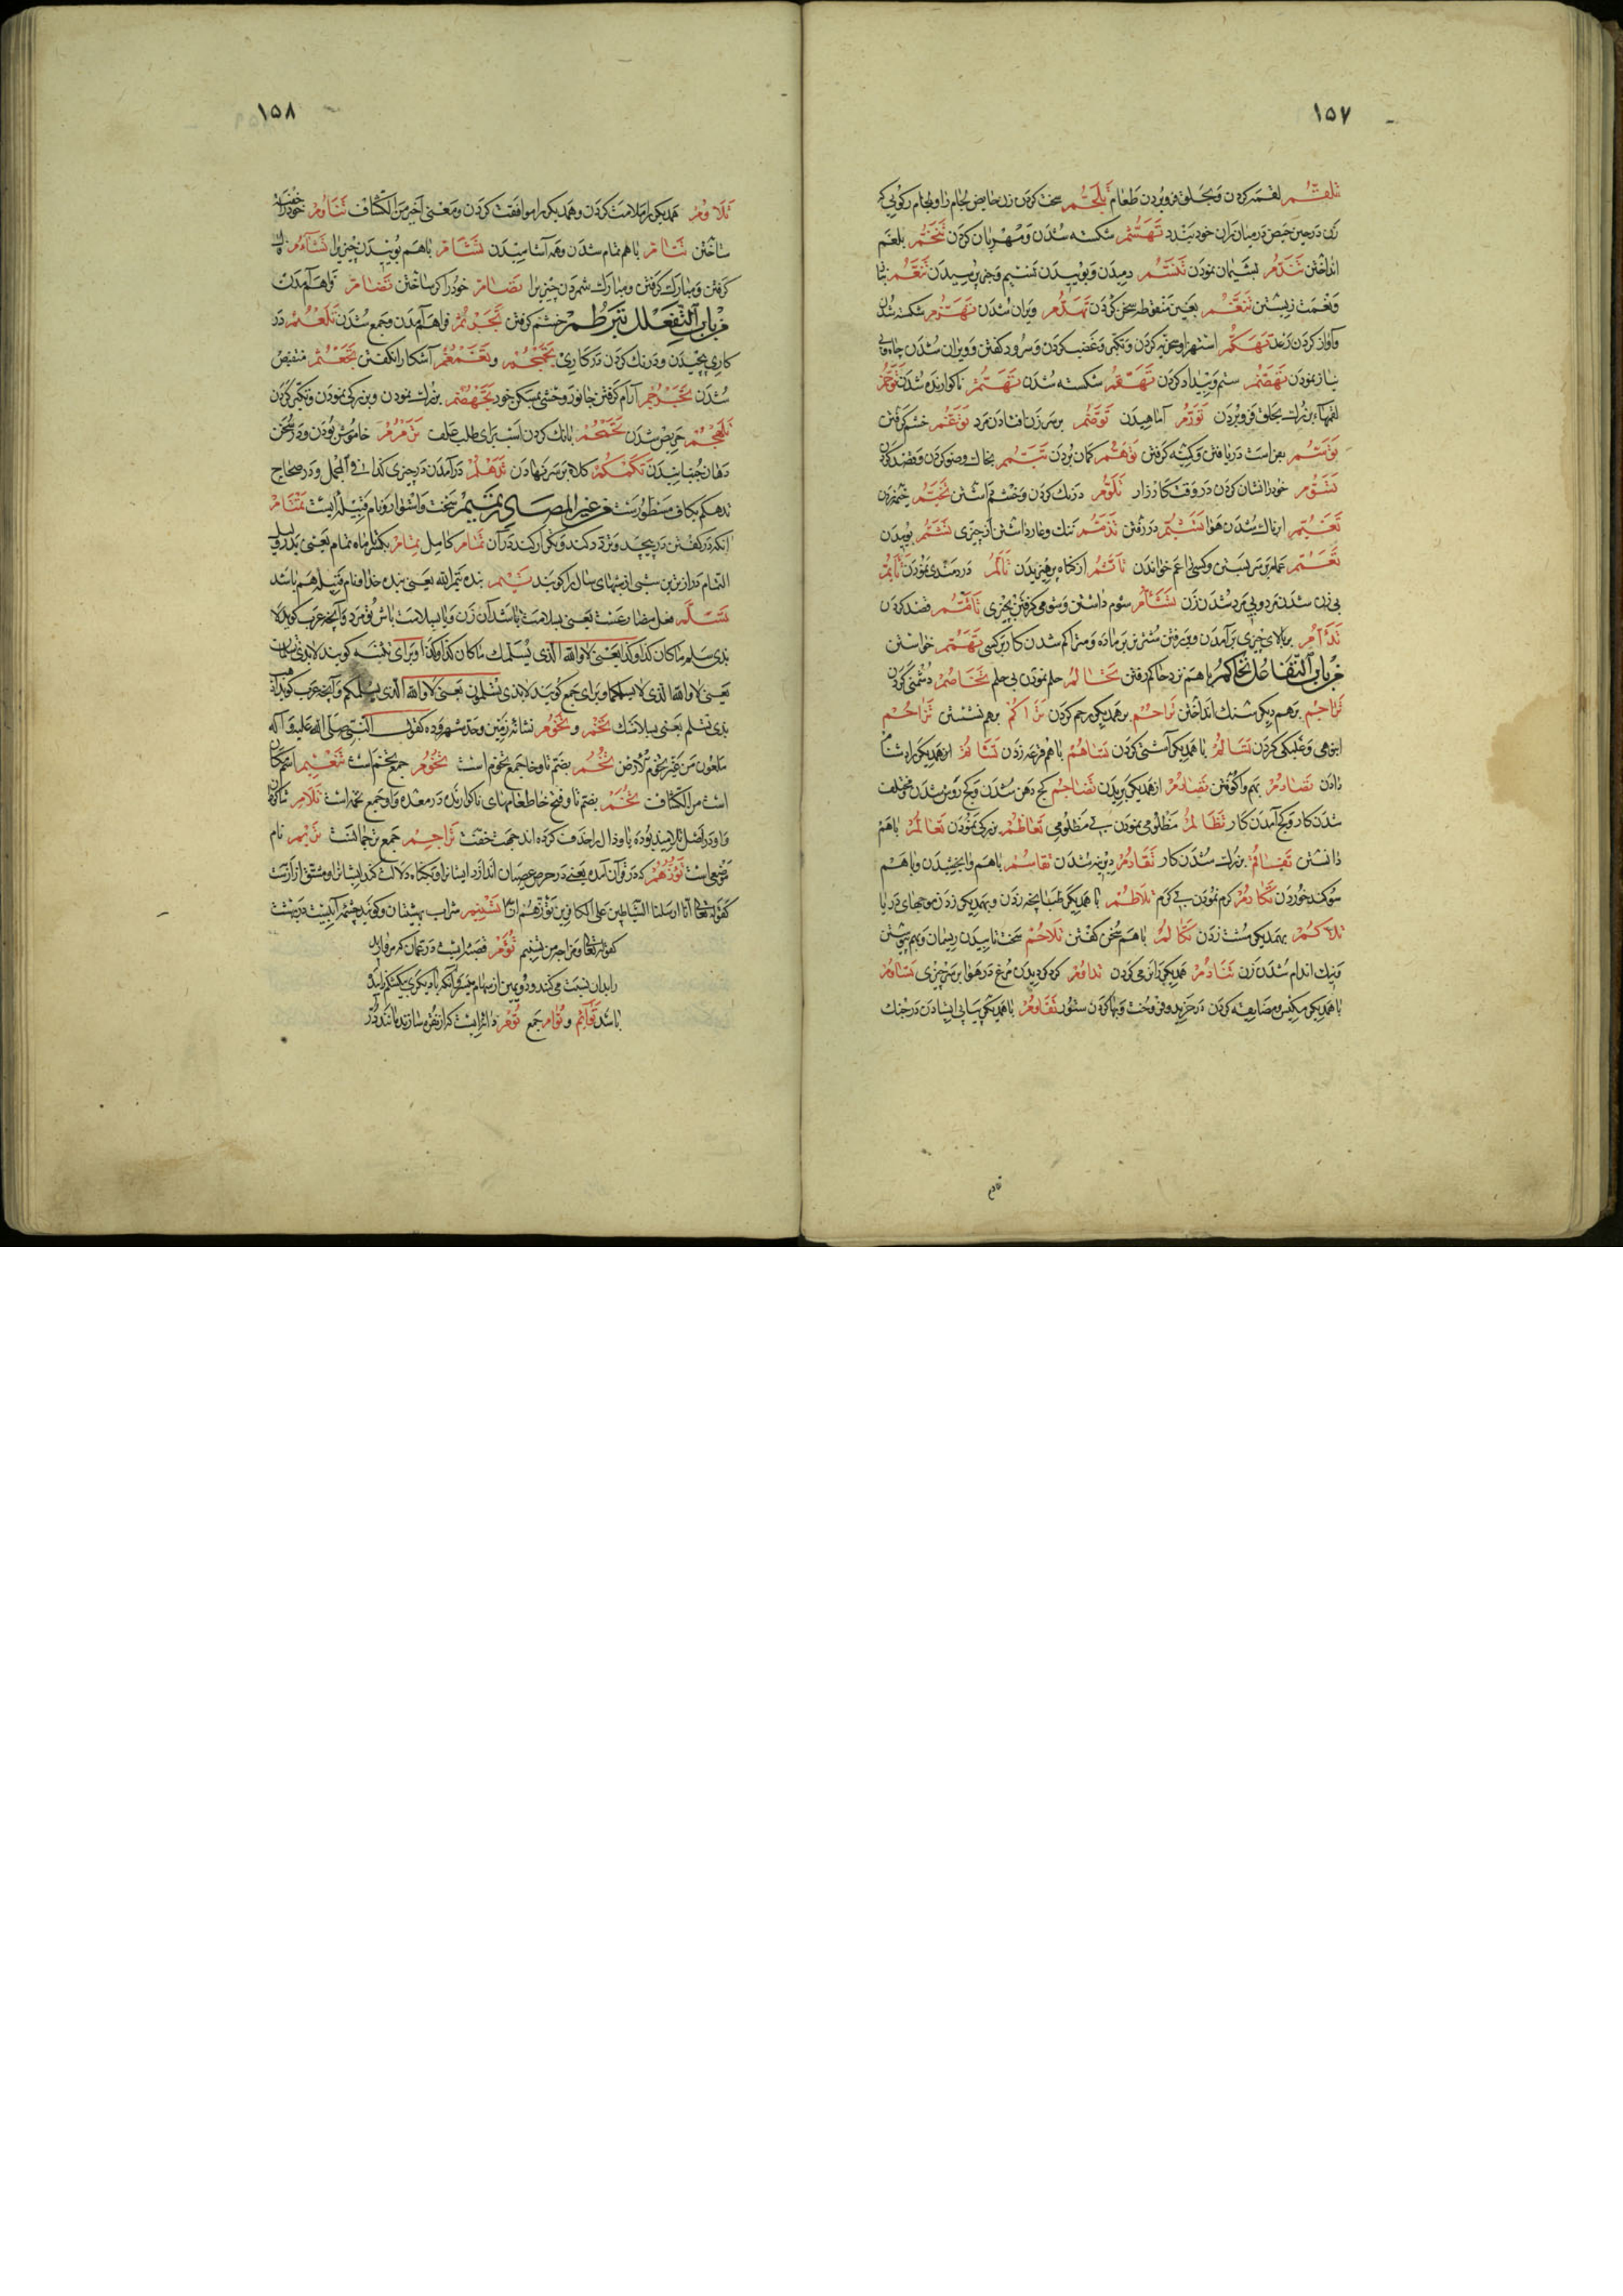 ١٥٧
تلقّم لقمه کردن و بحلق فرو بردن طعام تلجّم سخت کردن زن حایض لجام را و لجام رکوئی که
زن در حین حیض در میان ران خود بندد تهتّم شکسته شدن و مهربان کردن تنخّم بلغم
انداختن تندّم پشیمان نمودن تنسّم دمیدن و بوییدن نسیم و خبر پرسیدن تنعّم بناز
و نعمت زیستن تنغّم بغین منقوطه سخن کردن تهدّم ویران شدن تهزّم شکسته شدن
و آواز کردن رعد تهکّم استهزا و سخریه کردن و تکبر و غضب کردن و سرود گفتن و ویران شدن چاه و بی
نیاز نمودن تهضّم ستم و بیداد کردن تهشّم شکسته شدن ناکوارنده شدن توخّم
لقمهاء بزرک بحلق فرو بردن تورّم آماهیدن بر سر زن افتادن مرد توغّم خشم گرفتن
توسّم بفراست دریافتن و کینه گرفتن توهّم گمان بردن تیمّم بخاک وضو کردن و قصد کردن
تسوّم خود را نشان کردن در وقت کارزار تلوّم درنک کردن و چشم داشتن تخیّم خیمه زدن
تغیّم ابرناک شدن هوا درفتن تذمّم ننک و عار داشتن از چیزی تشمّم بوییدن
تعمّم عمامه بر سر بستن و کسی را عم خواندن تأثّم از گناه پرهیزیدن تألّم دردمندی نمودن تأیّم
بی زن شدن مرد و بی مرد شدن زن تشأّم شوم داشتن و شومی گرفتن بچیزی تأمّم قصد کردن
بر بالای چیزی برآمدن و بر رفتن شتر نر بر ماده و متراکم شدن کار بر کسی تهمّم خواستن
من باب التفاعل تحاکم با هم نزد حاکم رفتن تحالم حلم نمودن بی حلم تخاصم دشمنی کردن
تراجم بر هم دیکر سنک انداختن تراحم بر همدیکر رحم کردن تراکم بر هم نشستن تزاحم
انبوهی و تنکی کردن تسالم با همدیکر آشتی کردن تساهم با هم قرعه زدن تشاتم از همدیکر را دشنام
دادن تصادم بهم واکوفتن تصارم از همدیکر بریدن تضاجم کج دهن شدن و کج روش شدن و مختلف
شدن کار و کج آمدن کار تظالم مظلومی نمودن بی مظلومی تعاظم بزرکی نمودن تعالم با هم
دانستن تفاقم بزرک شدن کار تقادم دیرینه شدن تقاسم با هم وابخشیدن و با هم
سوکند خوردن تکارم کرم نمودن بی کرم تلاطم با همدیکر طپانچه زدن و بهمدیکر زدن موجهای دریا
تلاکم بهمدیکر مشت زدن تکالم با هم سخن کفتن تلاحم سخت تابیدن ریسمان و بهم پیوستن
و نیک اندام شدن زن تنادم همدیکر را ندیمی کردن تداوم کرد کردیدن مرغ در هوا بر سر چیزی تساوم
با همدیکر مکیس و مضایقه کردن در خرید و فروخت و بها کردن ستور تقاوم با همدیکر بپای ایستادن در جنک
١٥٨
تلاوم همدیکر را ملامت کردن و همدیکر را موافقت کردن و معنی آخر من الکشاف تناوم خود را خفته
ساختن تتامّ با هم تمام شدن و همه آشامیدن تشامّ با هم بوییدن چیزی را
گرفتن و مبارک گرفتن و مبارک شمردن چیزی را تصامّ خود را کر ساختن تضامّ فراهم آمدن
من باب التفعلل تبرطم خشم گرفتن تجرثم فراهم آمدن و جمع شدن تلعثم در
کاری پیچیدن و درنک کردن در کاری تجمجم و تغمغم آشکارا نکفتن تجعثم منقبض
شدن آرام گرفتن جانور وحشی بمسکن خود تجهضم بزرک نمودن و بزرکی نمودن و تکبر کردن
تلهجم حریص شدن تحمحم بانک کردن اسب برای طلب علف ترمرم خاموش بودن و در سخن
دهان جنبانیدن تکمکم کلاه بر سر نهادن تدهکم درآمدن در چیزی کذا فی المجمل و در صحاح
تدهکم بکاف مسطور است من غیر المصادر تمیم سخت و استوار و نام قبیله ایست تمتام
آنکه در کفتن در پیچد و تردد کند تمام کامل تمام بکسر تا ماه تمام یعنی بدر و لیل
التمام درازترین شبی از شبهای سال را کویند تیم بنده تیم الله یعنی بنده خدا و نام قبیله هم باشد
تسلم فعل مضارعست یعنی بسلامت باشد آن زن و یا بسلامت باش تو مرد و آنچه عرب کوید لا
بذی تسلم ما کان کذا و کذا یعنی لا والله الذی یسلمک ما کان کذا و کذا و برای تثنیه کویند لا بذی تسلمان
یعنی لا والله الذی یسلمکما و برای جمع کویند لا بذی تسلمون یعنی لا والله الذی یسلمکم و آنچه عرب کوید اذهب
بذی تسلم یعنی بسلامتک تخم و تخوم نشانه زمین و حد شهر و ده کقول النبی صلی الله علیه و آله
ملعون من غیر تخوم الارض تخم بضم تا و خا جمع تخوم است تخوم جمع تخم است تسنیم اسم مکان
است من الکشاف تخم بضم تا و فتح خا طعامهای ناکوارنده در معده و او جمع تخمه است تلام شاکردان
و او در اصل تلامیذ بوده یا و ذال را حذف کرده اند جهت خفت تراجم جمع ترجمانست تریم نام
موضعی است تؤزّهم که در قرآن آمده یعنی در حرص عصیان اندازد ایشانرا و بکناه دلالت کند ایشانرا و مشتق از ازّ است
کقوله تعالی انا ارسلنا الشیاطین علی الکافرین تؤزهم ازا تسنیم شراب بهشتیان و کویند چشمه آبیست در بهشت
کقوله تعالی و مزاجه من تسنیم تؤم قصبه ایست در عمان که مروارید
را بدان نسبت می کنند و دویمین از سهام میسر و آنکه با دیکری بیک شکم زاید
باشد توائم و تؤام جمع تؤم دانه ایست که از نقره سازند مانند در